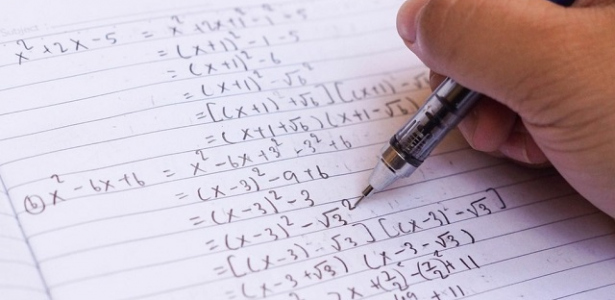 x² + 2x - 5 = x² + 2x + 1 - 1 - 5
= (x+1)² - 1 - 5
= (x+1)² - 6
= (x+1)² - √6²
= [(x+1) + √6] [(x+1) - √6]
= (x+1+√6)(x+1-√6)
(b) x² - 6x + 6 = x² - 6x + 3² - 3² + 6
= (x-3)² - 9 + 6
= (x-3)² - 3
= (x-3)² - √3²
= [(x-3) - √3] [(x-3) - √3]
= (x-3+√3) (x-3-√3)